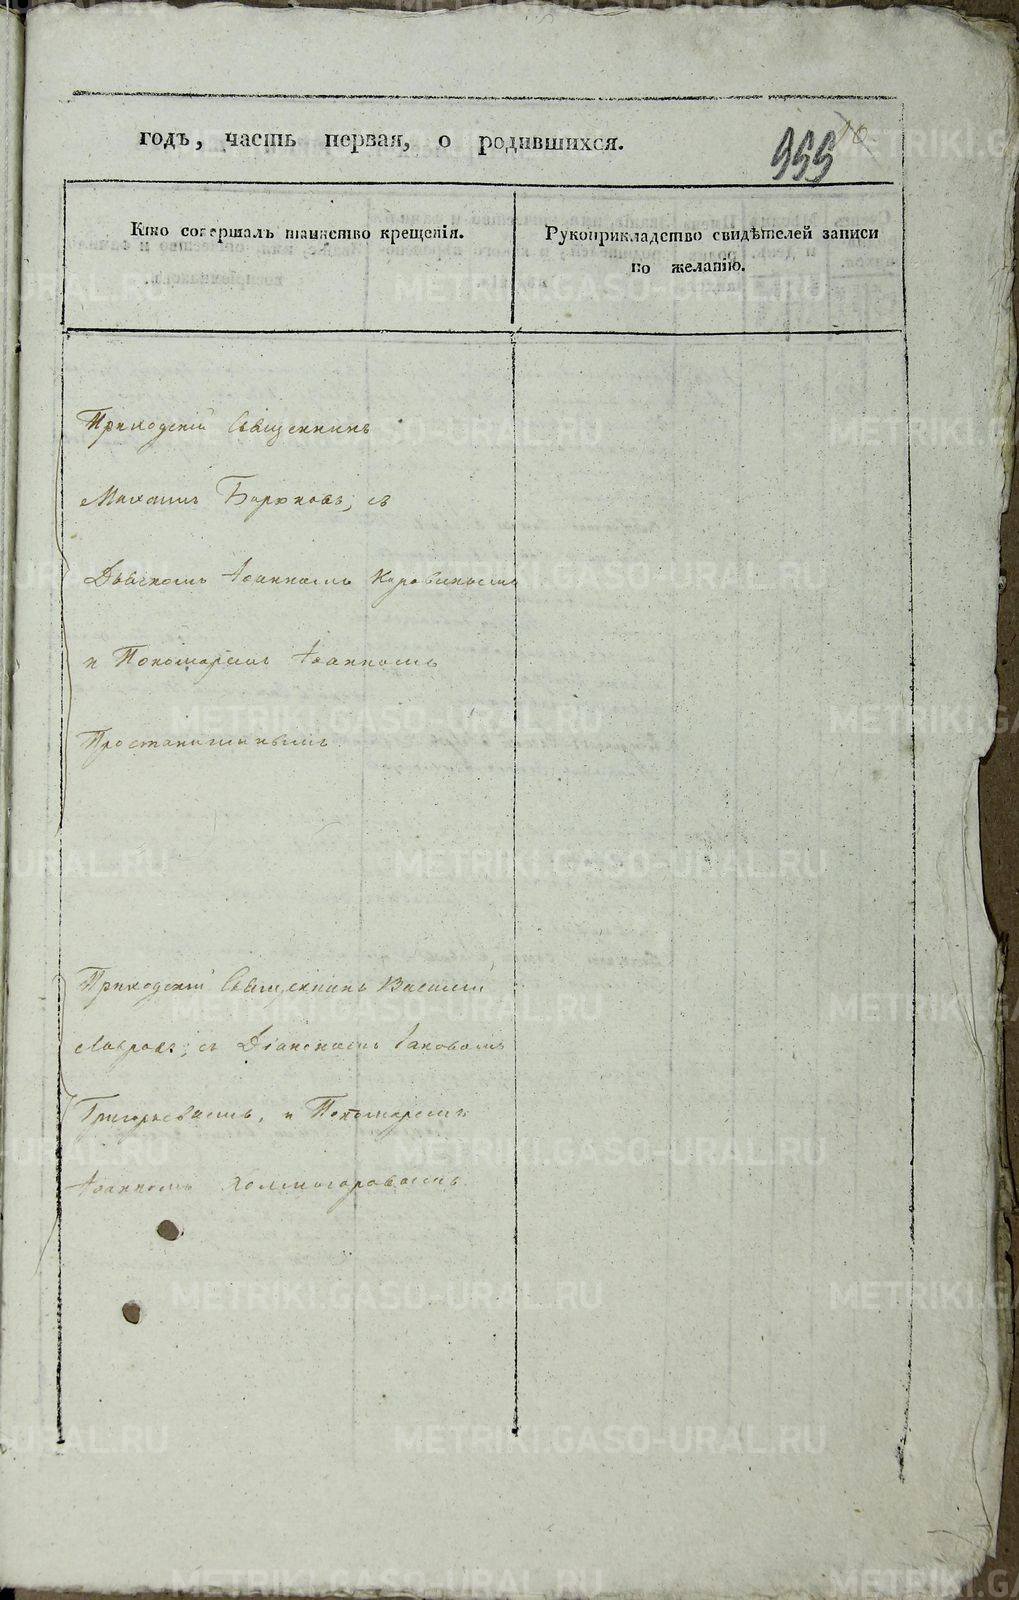 годъ, часть первая, о родившихся.
955
10
Кто совершалъ таинство крещенія.
Рукоприкладство свидѣтелей записи
по желанію.
Приходскій Священникъ
Михаилъ Бирюковъ, съ
Дьякономъ Іоанномъ
и Пономаремъ Іоанномъ
Приходскій Священникъ Василій
Лавровъ, съ Діакономъ Іаковомъ
Григорьевымъ, и Пономаремъ
Іоанномъ Холмогоровымъ.
METRIKI.GASO-URAL.RU